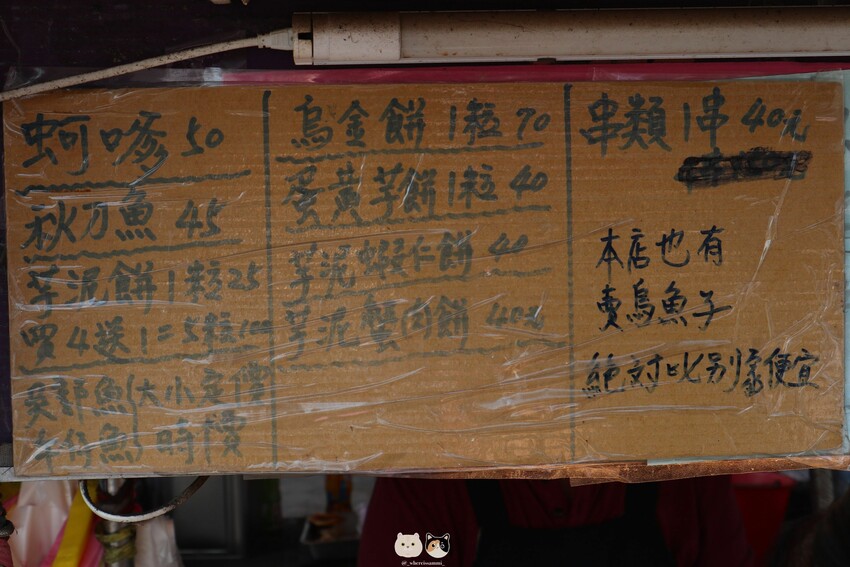 蚵嗲 50
秋刀魚 45
芋泥餅 1粒 25
買4送1=5粒100
吳郭魚(大小定價
午仔魚) 時價
烏金餅 1粒 70
蛋黃芋餅 1粒 40
芋泥蝦仁餅 40
芋泥蟹肉餅 40元
串類 1串 40元
本店也有
賣烏魚子
絕对比別家便宜
@_whereissammi_